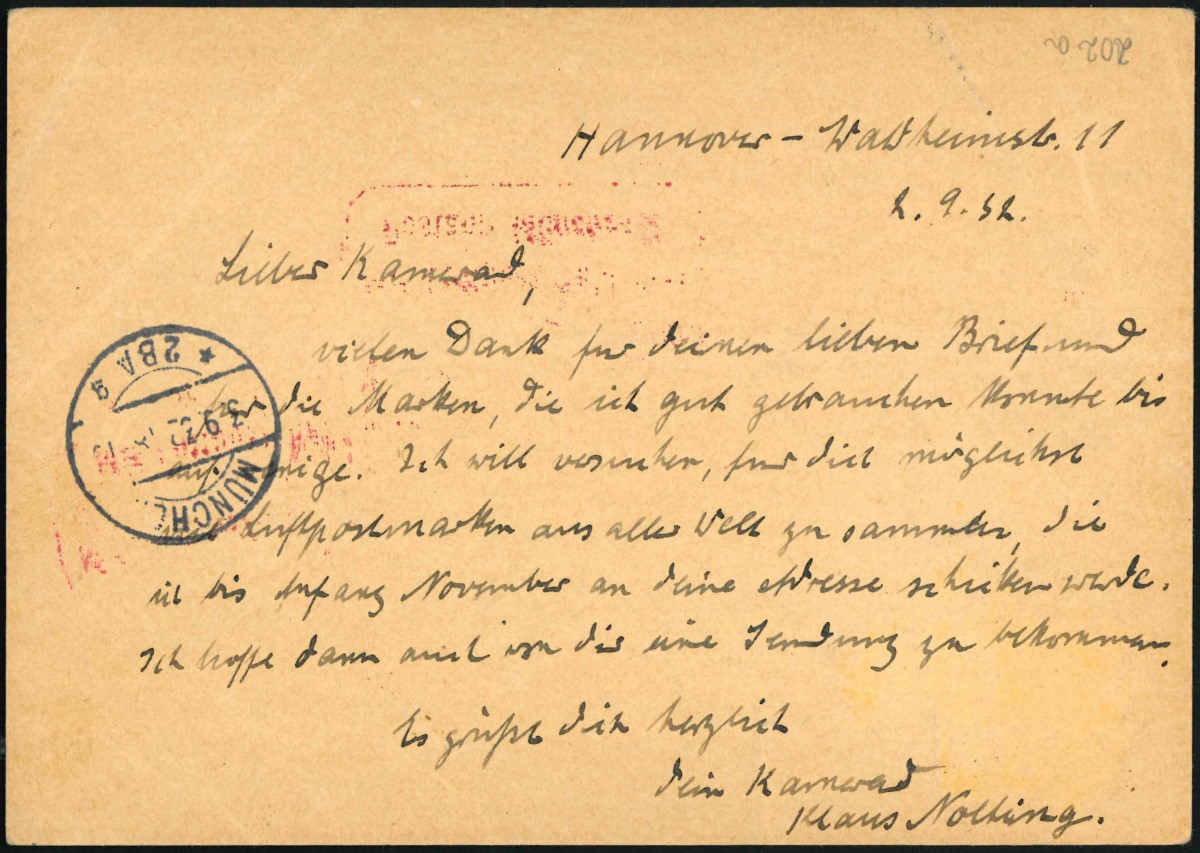 202 a
Hannover - Waldheimstr. 11
2. 9. 32.
Lieber Kamerad,
vielen Dank für deinen lieben Brief und
für die Marken, die ich gut gebrauchen konnte bis
auf einige. Ich will versuchen, für dich möglichst
Luftpostmarken aus aller Welt zu sammeln, die
ich bis Anfang November an deine Adresse schicken werde.
Ich hoffe dann auch von dir eine Sendung zu bekommen.
Es grüßt dich herzlich
dein Kamerad
Klaus Nolting.
MÜNCHEN
3. 9. 32
* 2BA 9